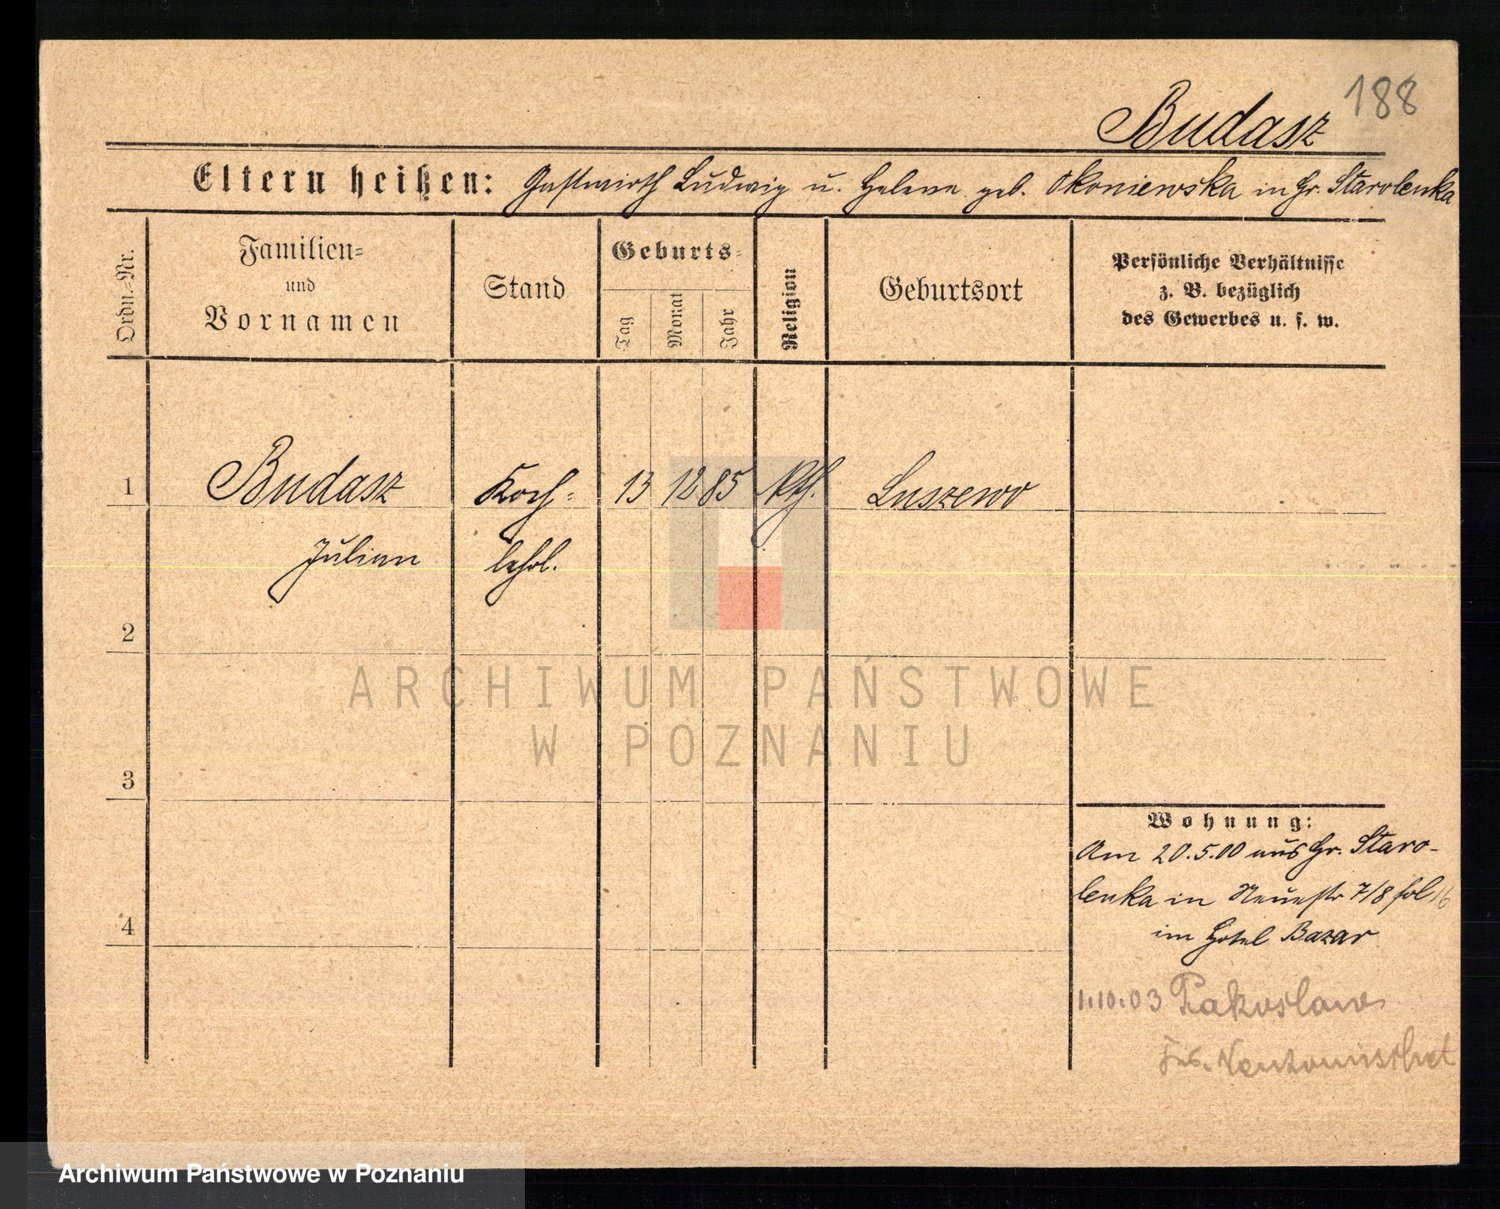 188
Budasz
Eltern heißen: Gastwirth Ludwig u. Helena geb. Okoniewska in Gr. Starolenka
Ordn.-Nr.
Familien-
und
Vornamen
Stand
Geburts-
Tag
Monat
Jahr
Religion
Geburtsort
Persönliche Verhältnisse
z. B. bezüglich
des Gewerbes u. s. w.
1
Budasz
Koch-
13
12
85
kth.
Luszewo
Julian
lehrl.
2
ARCHIWUM PAŃSTWOWE
W POZNANIU
3
Wohnung:
Am 20.5.00 aus Gr. Staro-
lenka in Neuestr 7/8 fol 16
im Hotel Bazar
4
1.10.03 Pakoslaw
Neutomischel
Archiwum Państwowe w Poznaniu